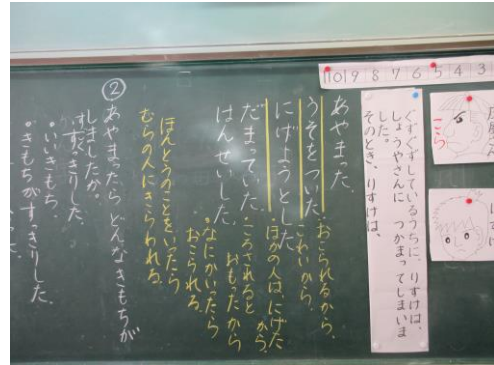 11 10 9 8 7 6 5 4 3
こら
ぐずぐずしているうちに、りすけは、
しょうやさんに つかまってしまいま
した。
そのとき、りすけは、
あやまった。
うそをついた
・おこられるから。
・こわいから。
にげようとした
・ほかの人は、にげた
から。
だまっていた
・ころされると
おもったから
・なにかいったら
おこられる。
はんせいした。
ほんとうのことをいったら
むらの人にきらわれる。
② あやまったら どんなきもちが
しましたか。
・すっきりした。
・いいきもち。
・きもちがすっきりした。